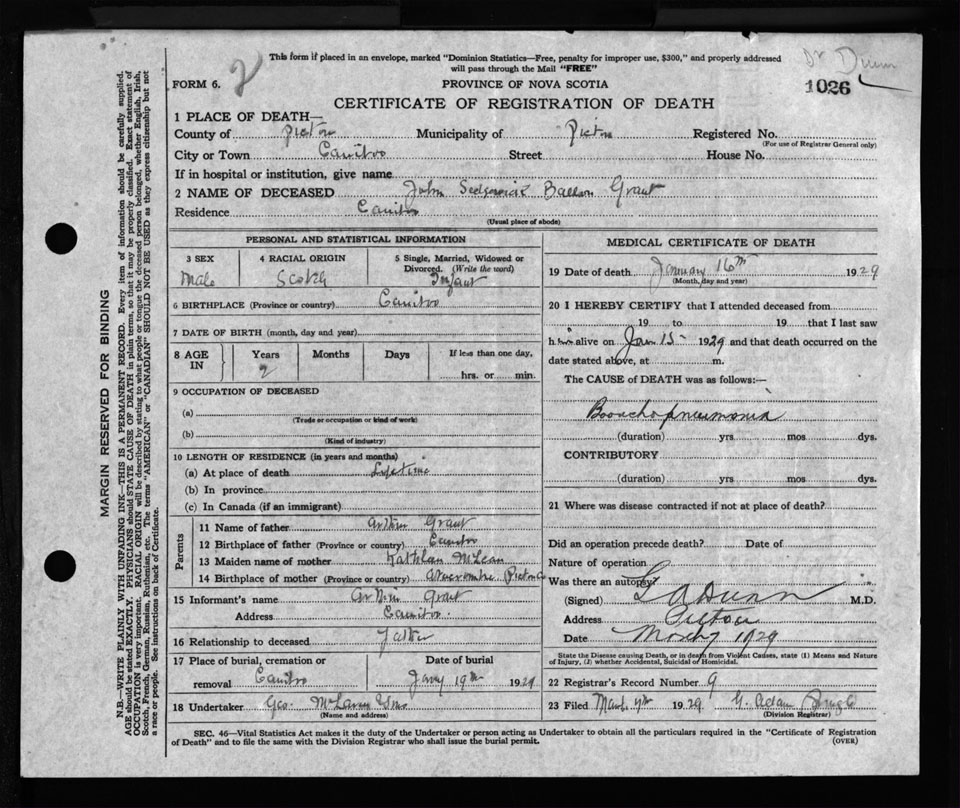 This form if placed in an envelope, marked "Dominion Statistics—Free, penalty for improper use, $300," and properly addressed
will pass through the Mail "FREE"
Dr Dunn
1026
FORM 6.
2
PROVINCE OF NOVA SCOTIA
CERTIFICATE OF REGISTRATION OF DEATH
1 PLACE OF DEATH—
County of Pictou Municipality of Pictou Registered No.
(For use of Registrar General only)
City or Town Street House No.
If in hospital or institution, give name
2 NAME OF DECEASED John Grant
Residence
(Usual place of abode)
PERSONAL AND STATISTICAL INFORMATION
3 SEX
Male
4 RACIAL ORIGIN
Scotch
5 Single, Married, Widowed or
Divorced. (Write the word)
Infant
6 BIRTHPLACE (Province or country)
7 DATE OF BIRTH (month, day and year)
8 AGE
IN
Years
2
Months
Days
If less than one day,
hrs. or min.
9 OCCUPATION OF DECEASED
(a)
(Trade or occupation or kind of work)
(b)
(Kind of industry)
10 LENGTH OF RESIDENCE (in years and months)
(a) At place of death Lifetime
(b) In province
(c) In Canada (if an immigrant)
Parents
11 Name of father Arthur Grant
12 Birthplace of father (Province or country)
13 Maiden name of mother McLean
14 Birthplace of mother (Province or country) Pictou Co
15 Informant's name Arthur Grant
Address
16 Relationship to deceased Father
17 Place of burial, cremation or
removal
Date of burial
Jany 19th 1929
18 Undertaker Geo. McLaren & Sons
(Name and address)
MEDICAL CERTIFICATE OF DEATH
19 Date of death January 16th 1929
(Month, day and year)
20 I HEREBY CERTIFY that I attended deceased from
19 to 19 that I last saw
him alive on Jan 15 1929 and that death occurred on the
date stated above, at m.
The CAUSE of DEATH was as follows:—
Bronchopneumonia
(duration) yrs mos dys.
CONTRIBUTORY
(duration) yrs mos dys.
21 Where was disease contracted if not at place of death?
Did an operation precede death? Date of
Nature of operation
Was there an autopsy?
(Signed) Dunn M.D.
Address Pictou
Date 1929
State the Disease causing Death, or in death from Violent Causes, state (1) Means and Nature
of Injury, (2) whether Accidental, Suicidal or Homicidal.
22 Registrar's Record Number 9
23 Filed 1929 G. Adam
(Division Registrar)
SEC. 46—Vital Statistics Act makes it the duty of the Undertaker or person acting as Undertaker to obtain all the particulars required in the "Certificate of Registration
of Death" and to file the same with the Division Registrar who shall issue the burial permit. (OVER)
MARGIN RESERVED FOR BINDING
N.B.—WRITE PLAINLY WITH UNFADING INK—THIS IS A PERMANENT RECORD. Every item of information should be carefully supplied.
AGE should be stated EXACTLY. PHYSICIANS should STATE CAUSE OF DEATH in plain terms, so that it may be properly classified. Exact statement of
OCCUPATION is very important. RACIAL ORIGIN will be described by stating to what people or tongue the deceased person belonged, whether English, Irish,
Scotch, French, German, Russian, Ruthenian, etc. The terms "AMERICAN" or "CANADIAN" SHOULD NOT BE USED as they express citizenship but not
a race or people. See instructions on back of Certificate.